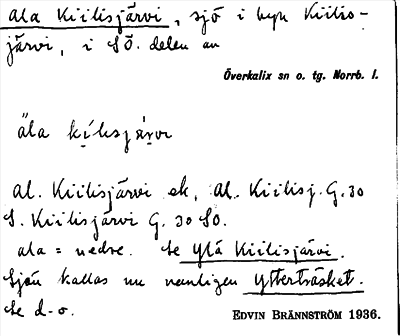 Ala Kiilisjärvi, sjö i byn Kiilis-
järvi, i SÖ. delen av
Överkalix sn o. tg. Norrb. l.
äla kílisjärvi
Al. Kiilisjärvi ek, Al. Kiilisj. G. 30
S. Kiilisjärvi G. 30 SO.
ala = nedre. Se Ylä Kiilisjärvi.
Sjön kallas nu vanligen Ytterträsket.
Se d.o.
EDVIN BRÄNNSTRÖM 1936.